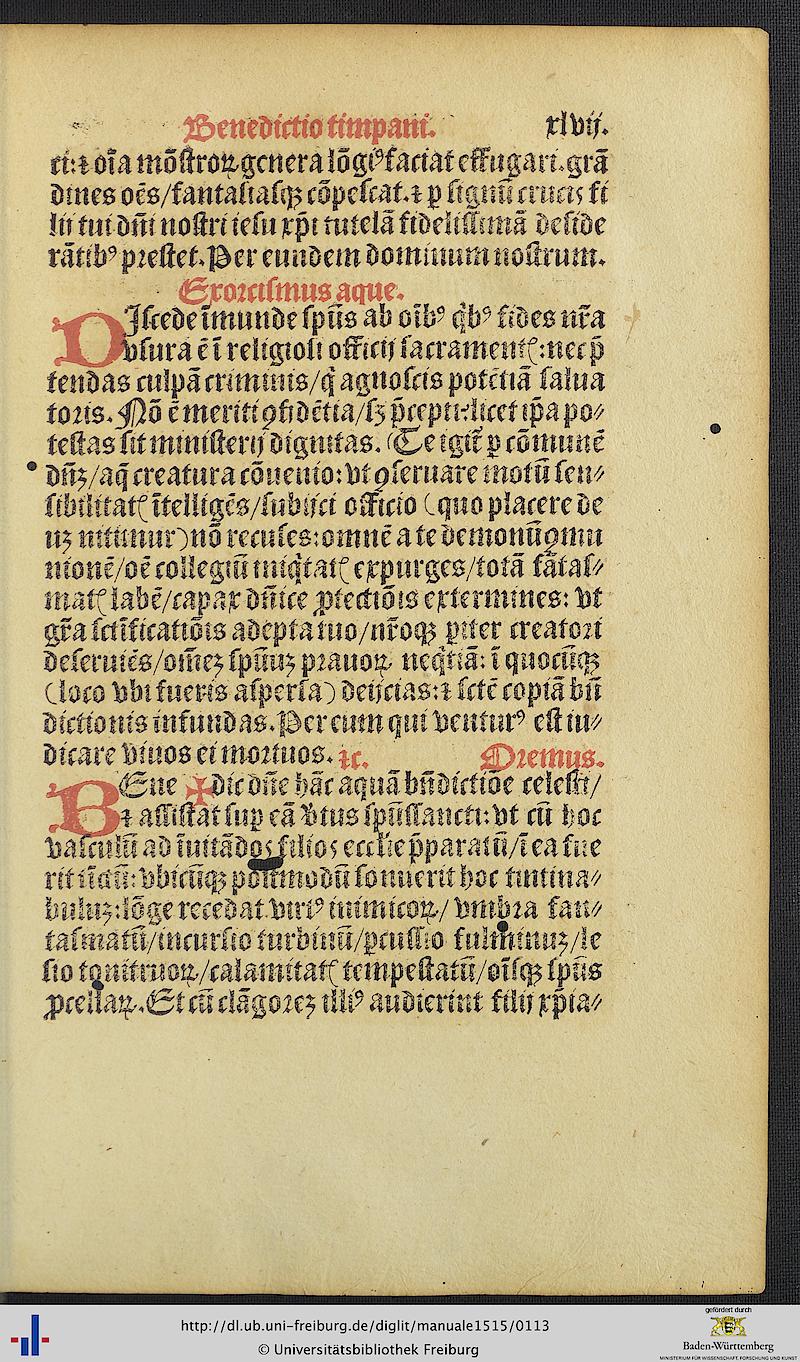 Benedictio timpani. xlvij.
ti: ⁊ oīa mōſtroꝝ genera lōgiꝰ faciat effugari. grā
dines oēs/fantaſiaſqꝫ cōpeſcat. ⁊ ꝑ ſignū crucis fi
lij tui dn̄i noſtri ieſu xp̄i tutelā fideliſſimā deſide
rātibꝰ preſtet. Per eundem dominum noſtrum.
Exorciſmus aque.
DIſcede īmunde ſpūs ab oībꝰ qͥbꝰ fides nr̄a
vſura ē ī religioſi officij ſacramentꝭ: nec p̄
tendas culpā criminis/qͥ agnoſcis potētiā ſalua
toris. Nō ē meriti ꝯfidētia/ſꝫ p̄cepti: licet ip̄a po⸗
teſtas ſit miniſterij dignitas. Te igit̄ ꝑ cōmunē
dn̄ꝫ/aq̄ creatura cōuenio: vt ꝯſeruare motū ſen⸗
ſibilitatꝭ ītelligēs/ſubijci officio (quo placere de
uꝫ nitimur) nō recuſes: omnē a te demonū ꝯmu
nionē/oē collegiū iniqͥtatꝭ expurges/totā fātaſ⸗
matꝭ labē/capax dn̄ice ꝓtectiōis extermines: vt
gr̄a ſctīficatiōis adepta tuo/nr̄oqꝫ pͥter creatori
deſeruiēs/om̄eꝫ ſpūuꝫ prauoꝝ neqͥtiā: ī quocūqꝫ
(loco vbi fueris aſperſa) deijcias: ⁊ ſctē copiā bn̄
dictionis infundas. Per eum qui venturꝰ eſt iu⸗
dicare viuos et mortuos. ⁊c. Oremus.
BEne ✠ dic dn̄e hāc aquā bn̄dictiōe celeſti/
⁊ aſſiſtat ſuꝑ eā v̓tus ſpūſſancti: vt cū hoc
vaſculū ad īuitādos filios eccl̄ie p̄paratū/ī ea fue
rit tīctū: vbicūqꝫ poſtmodū ſonuerit hoc tintina⸗
buluꝫ: lōge recedat virtꝰ inimicoꝝ/ vmbra fan⸗
taſmatū/incurſio turbinū/ꝑcuſſio fulminuꝫ/le
ſio tonitruoꝝ/calamitatꝭ tempeſtatū/oīſqꝫ ſpūs
ꝓcellaꝝ. Et cū clāgoreꝫ illiꝰ audierint filij xp̄ia⸗
http://dl.ub.uni-freiburg.de/diglit/manuale1515/0113
© Universitätsbibliothek Freiburg
gefördert durch
Baden-Württemberg
MINISTERIUM FÜR WISSENSCHAFT, FORSCHUNG UND KUNST